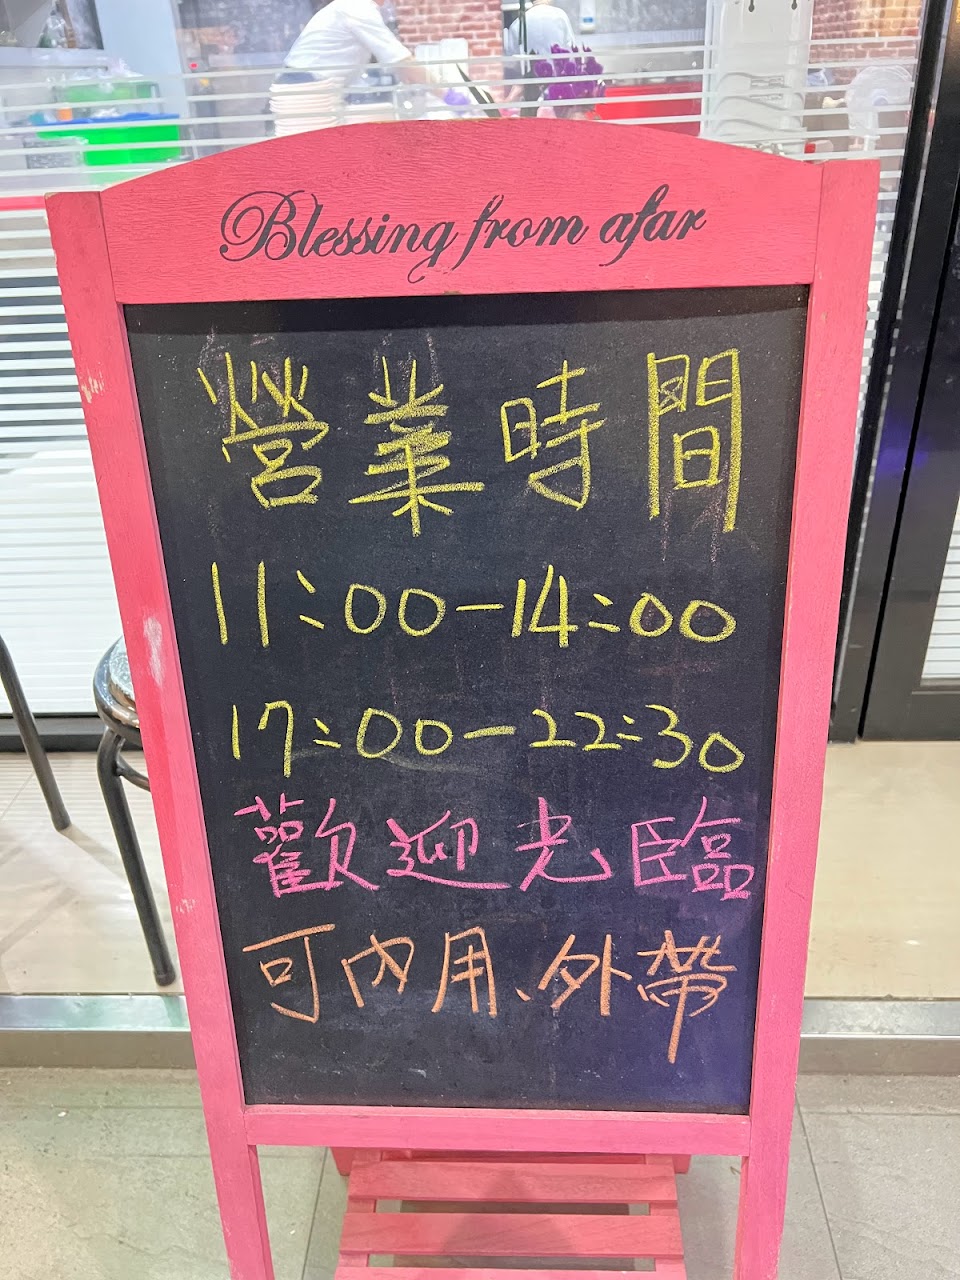 Blessing from afar
營業時間
11:00-14:00
17:00-22:30
歡迎光臨
可內用、外帶